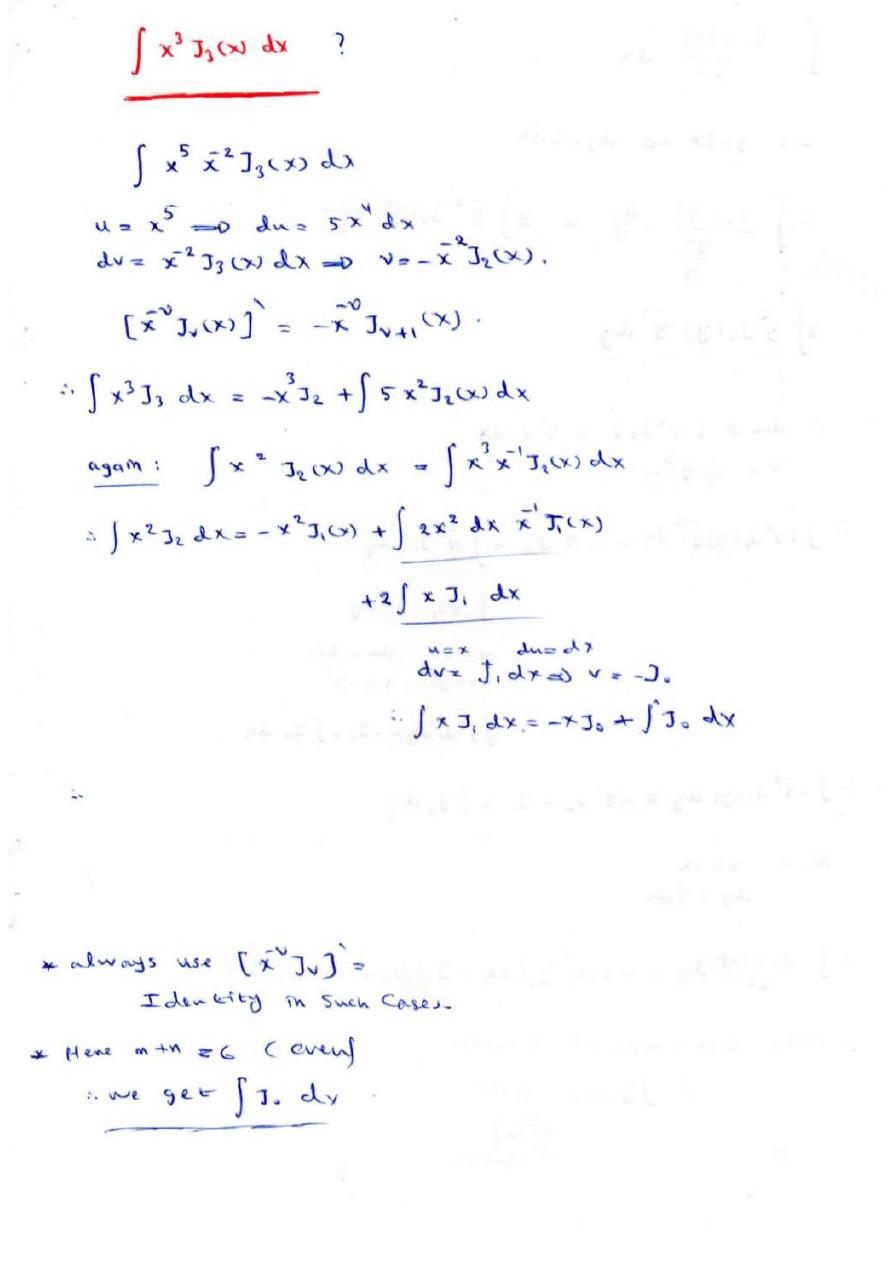 ∫ x³ J₃(x) dx ?
∫ x⁵ x⁻² J₃(x) dx
u = x⁵ ⇒ du = 5x⁴ dx
dv = x⁻² J₃(x) dx ⇒ v = -x⁻² J₂(x).
[x⁻ᵛ Jᵥ(x)]` = -x⁻ᵛ Jᵥ₊₁(x).
∴ ∫ x³ J₃ dx = -x³ J₂ + ∫ 5 x² J₂(x) dx
again : ∫ x² J₂(x) dx = ∫ x³ x⁻¹ J₂(x) dx
∴ ∫ x² J₂ dx = -x² J₁(x) + ∫ 2x² dx x⁻¹ J₁(x)
+2 ∫ x J₁ dx
u=x du=dx
dv= J₁ dx ⇒ v = -J₀
∴ ∫ x J₁ dx = -x J₀ + ∫ J₀ dx
∴
* always use [x⁻ᵛ Jᵥ]` =
Identity in Such Cases.
* Here m+n = 6 (even)
∴ we get ∫ J₀ dx